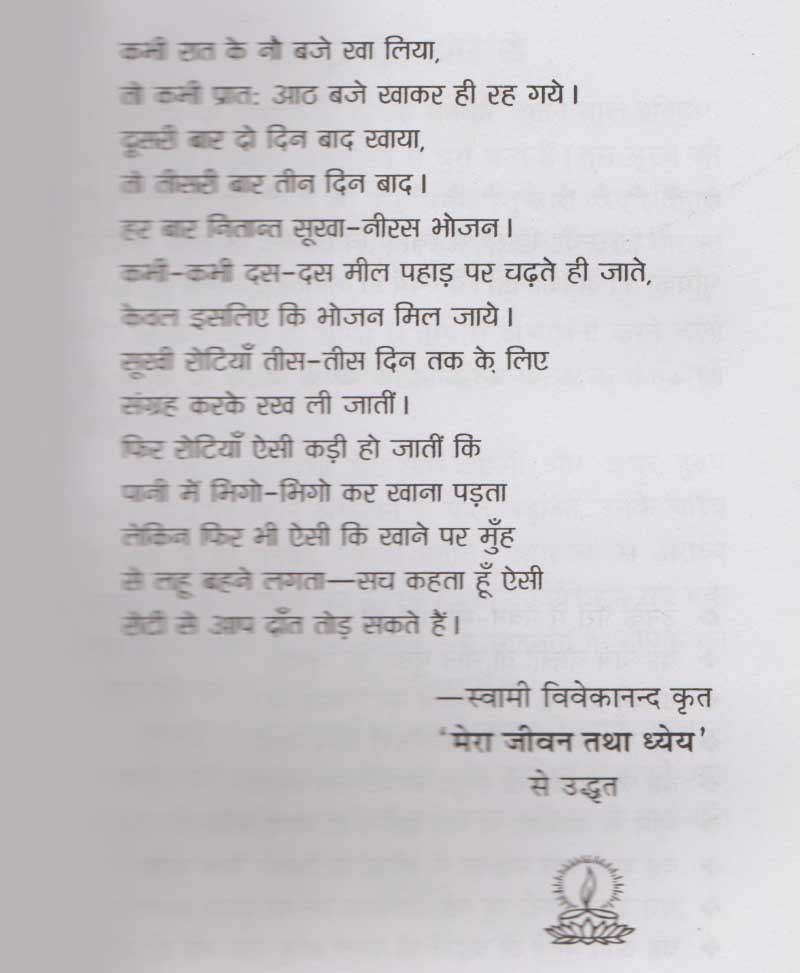 कभी रात के नौ बजे खा लिया,
तो कभी प्रात: आठ बजे खाकर ही रह गये।
दूसरी बार दो दिन बाद खाया,
तो तीसरी बार तीन दिन बाद।
हर बार नितान्त सूखा-नीरस भोजन।
कभी-कभी दस-दस मील पहाड़ पर चढ़ते ही जाते,
केवल इसलिए कि भोजन मिल जाये।
सूखी रोटियाँ तीस-तीस दिन तक के लिए
संग्रह करके रख ली जातीं।
फिर रोटियाँ ऐसी कड़ी हो जातीं कि
पानी में भिगो-भिगो कर खाना पड़ता
लेकिन फिर भी ऐसी कि खाने पर मुँह
से लहू बहने लगता—सच कहता हूँ ऐसी
रोटी से आप दाँत तोड़ सकते हैं।
—स्वामी विवेकानन्द कृत
'मेरा जीवन तथा ध्येय'
से उद्धृत